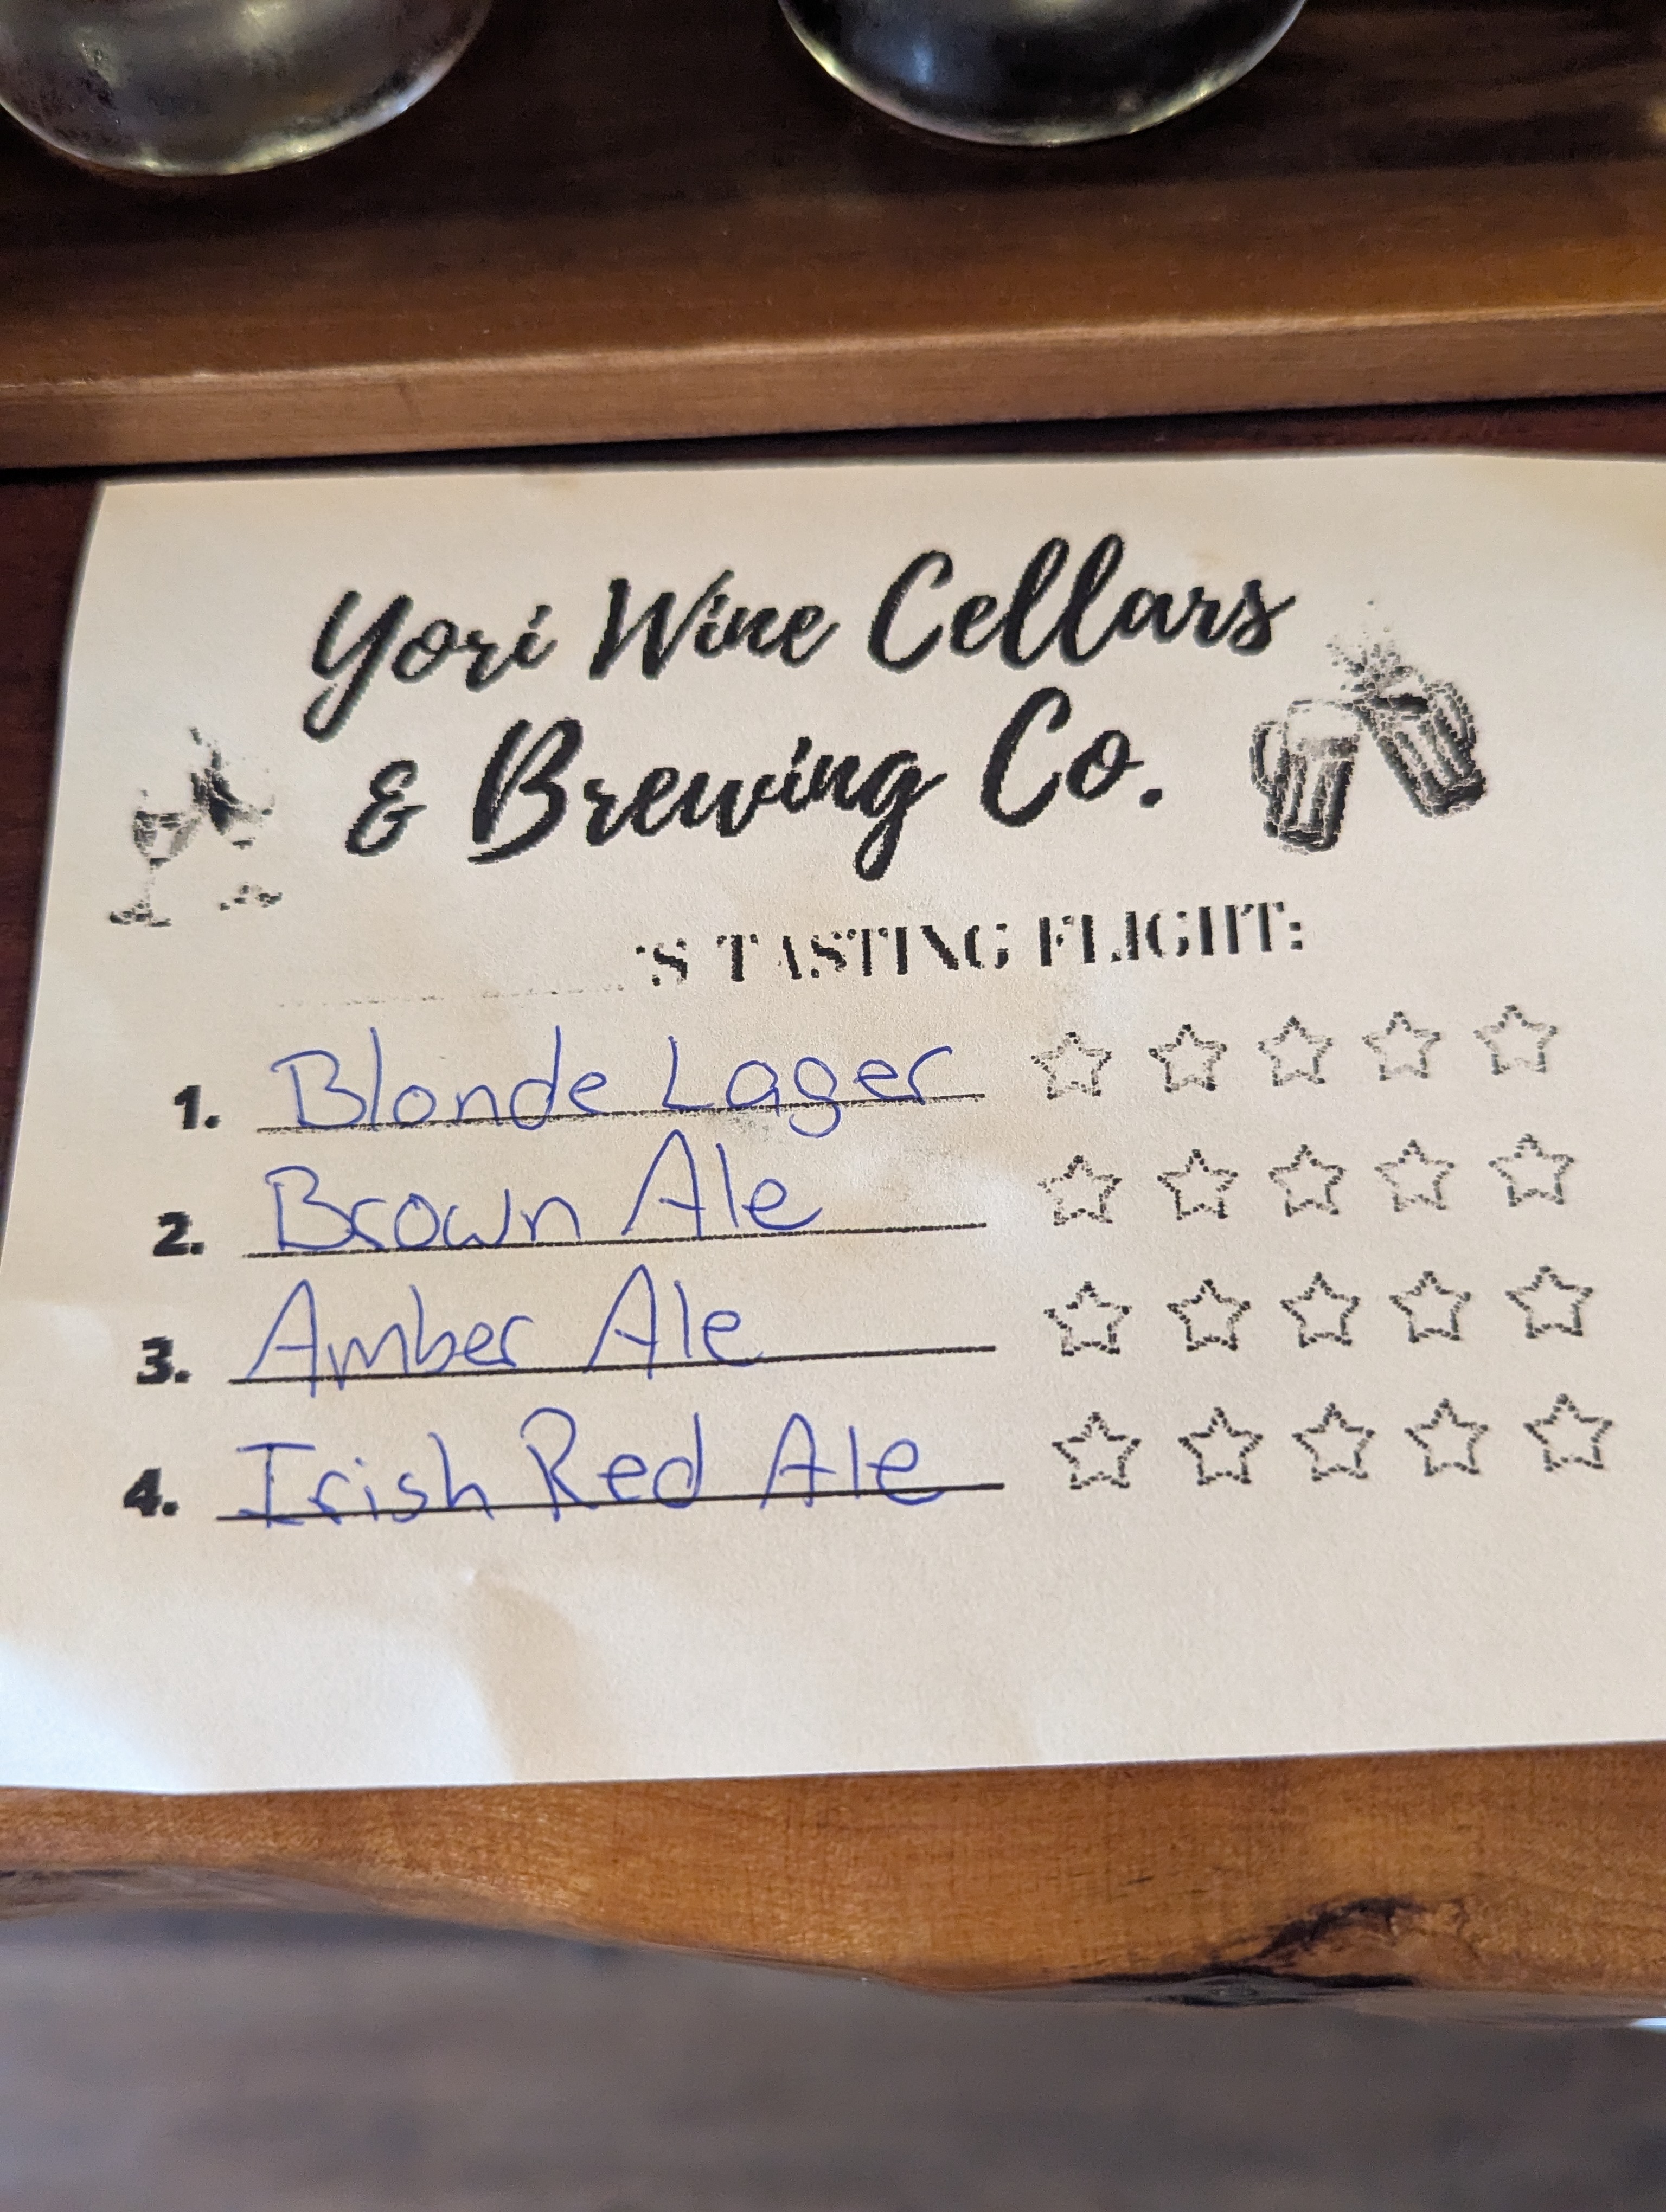 Yori Wine Cellars
& Brewing Co.
'S TASTING FLIGHT:
1. Blonde Lager
2. Brown Ale
3. Amber Ale
4. Irish Red Ale